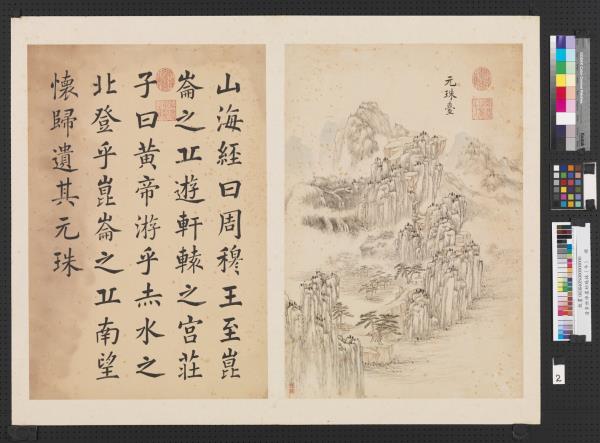 元珠臺
山海經曰周穆王至崑
崙之丘遊軒轅之宮莊
子曰黃帝游乎赤水之
北登乎崑崙之丘南望
懷歸遺其元珠
2